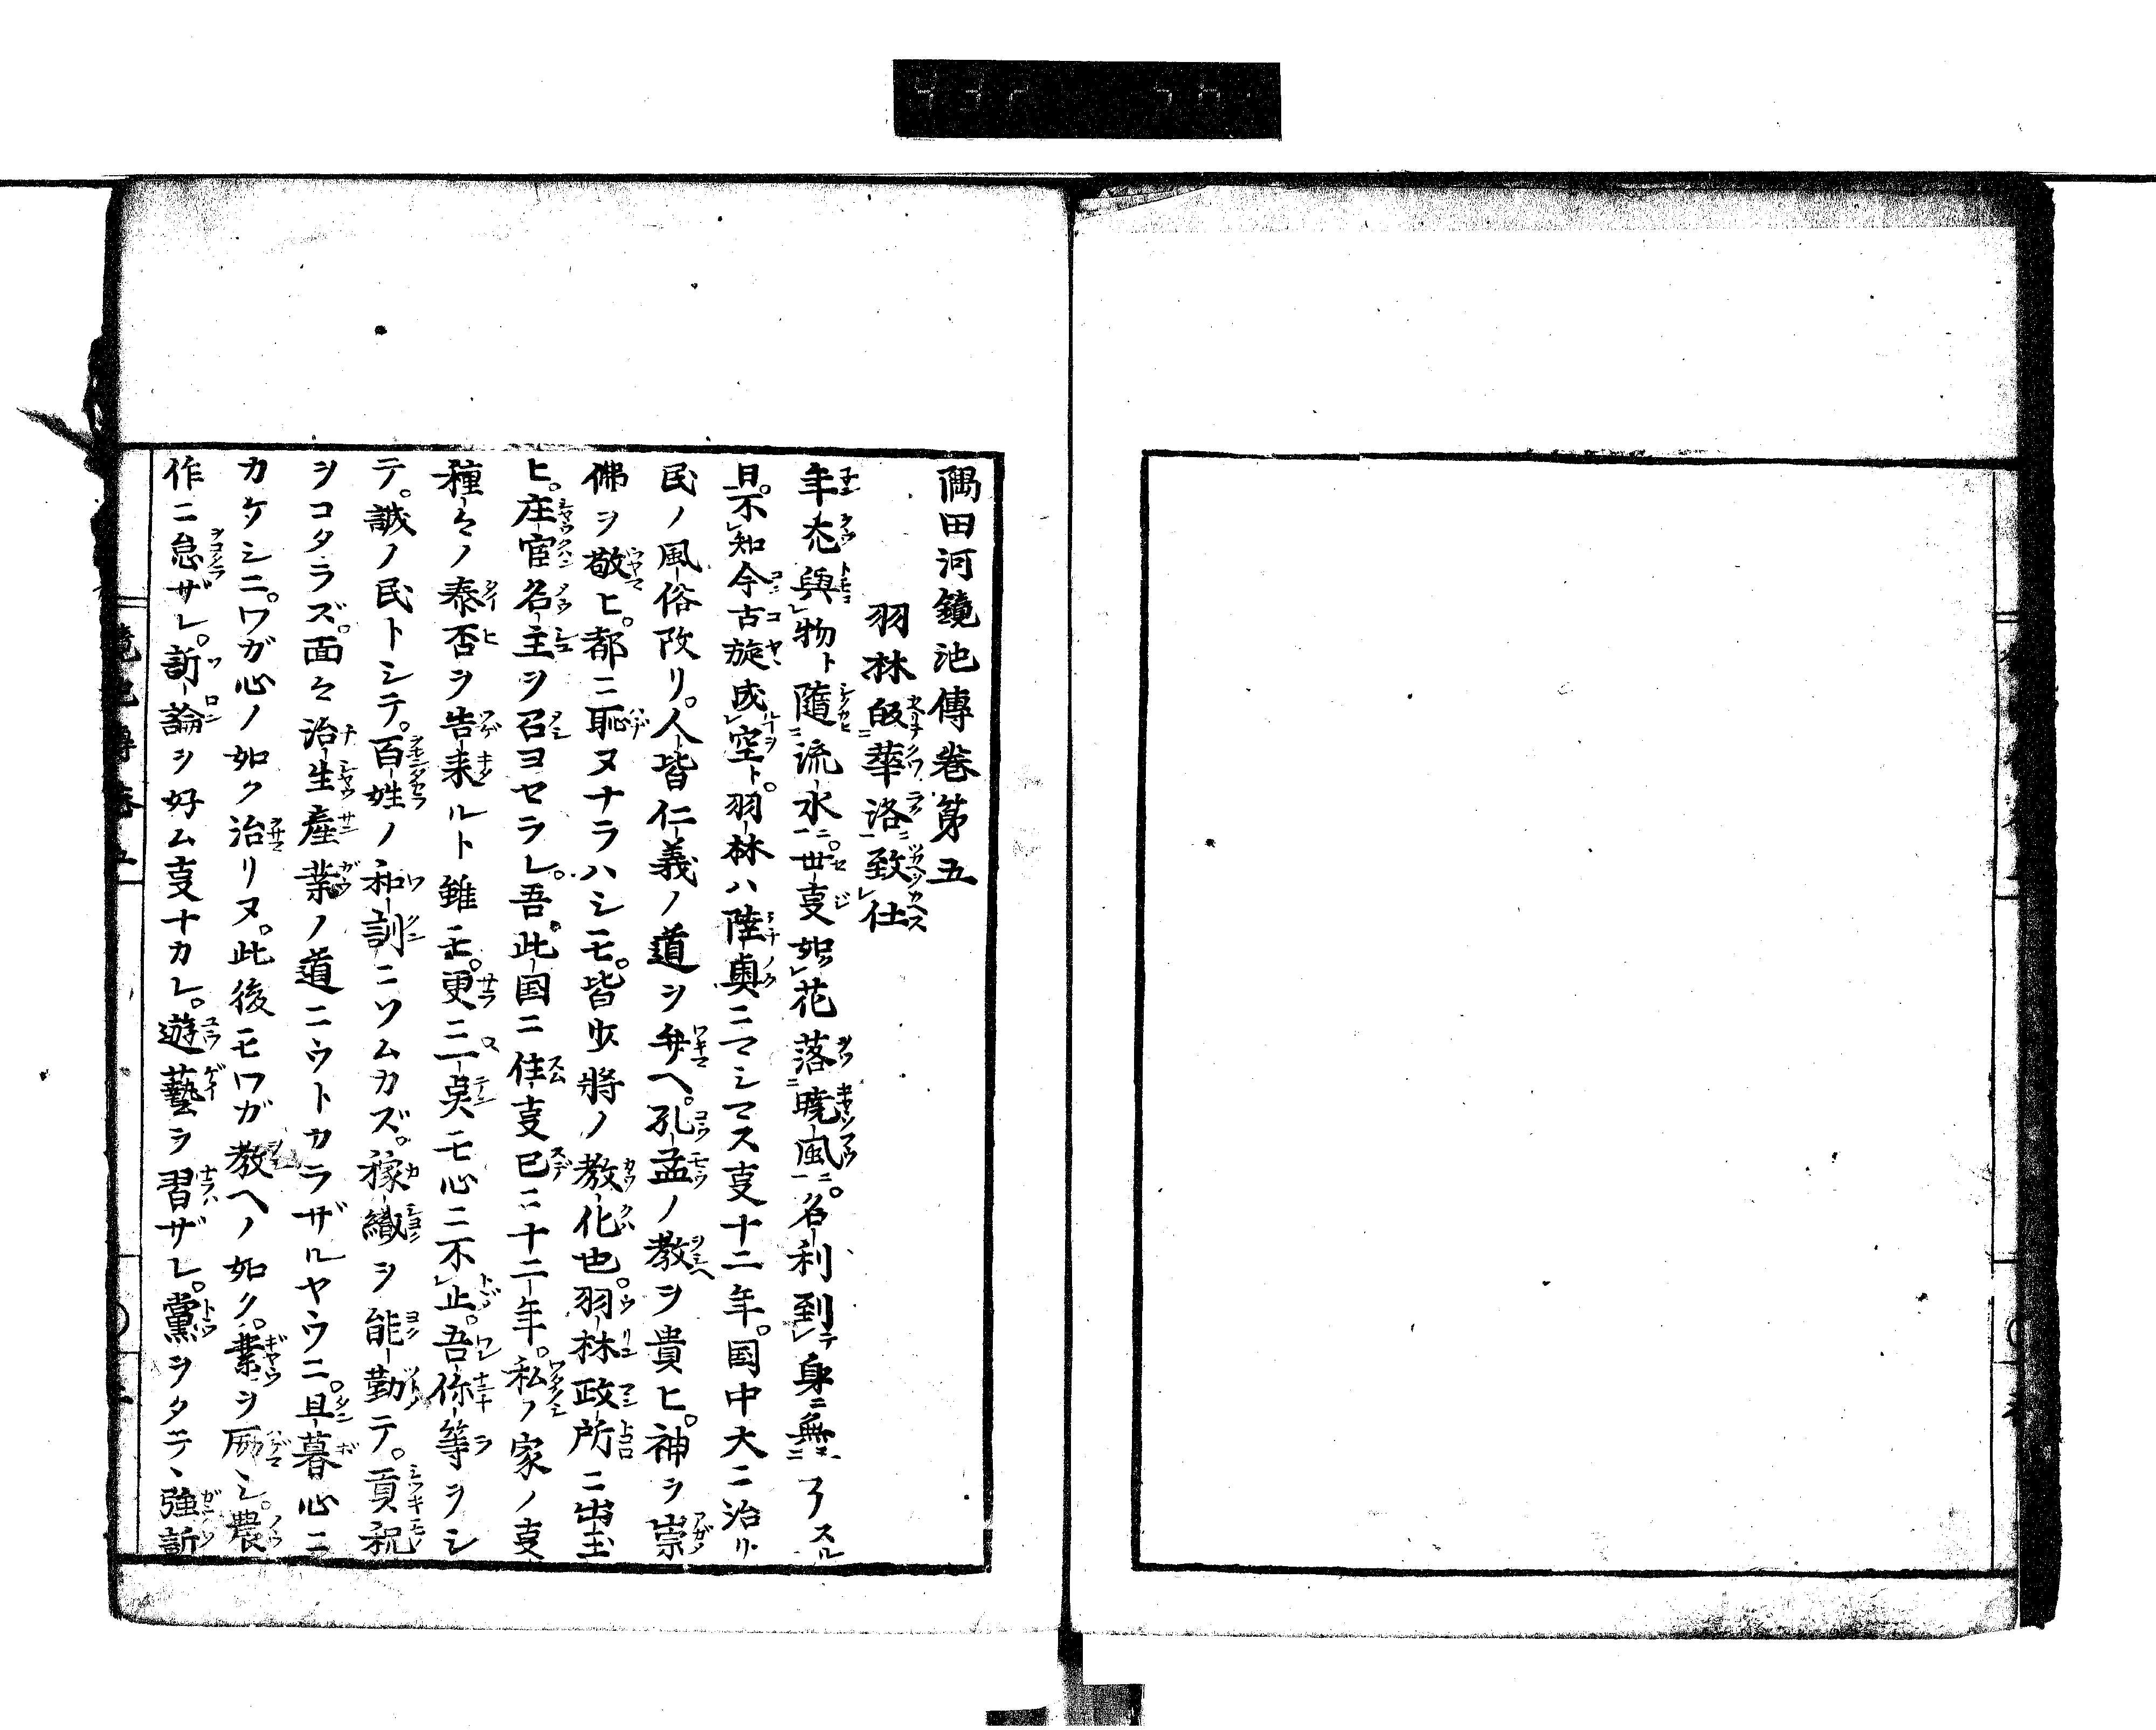 隅田河鏡池傳巻第五
羽林皈華洛致仕
年光與物ト隨流水ニ。世叓如花落暁風ニ。名利到テ身ニ無了スル
日。不知今古旋成空ト。羽林ハ陸奥ニマシマス叓十二年。国中大ニ治リ
民ノ風俗改リ。人皆仁義ノ道ヲ弁ヘ。孔孟ノ教ヲ貴ヒ。神ヲ崇
佛ヲ敬ヒ。都ニ恥ヌナラハシモ。皆少将ノ教化也。羽林政所ニ出玉
ヒ。庄官名主ヲ召ヨセラレ。吾此国ニ住叓已ニ十二年。私ノ家ノ叓
種々ノ泰否ヲ告来ルト雖モ。更ニ一奌モ心ニ不止。吾你等ヲシ
テ。誠ノ民トシテ。百姓ノ和訓ニソムカズ。稼織ヲ能勤テ。貢税
ヲコタラズ。面々治生産業ノ道ニウトカラザルヤウニ。旦暮心ニ
カケシニ。ワガ心ノ如ク治リヌ。此後モワガ教ヘノ如ク。業ヲ励シ。農
作ニ怠ザレ。訴論ヲ好ム叓ナカレ。遊藝ヲ習ザレ。黨ヲタテ、強訴